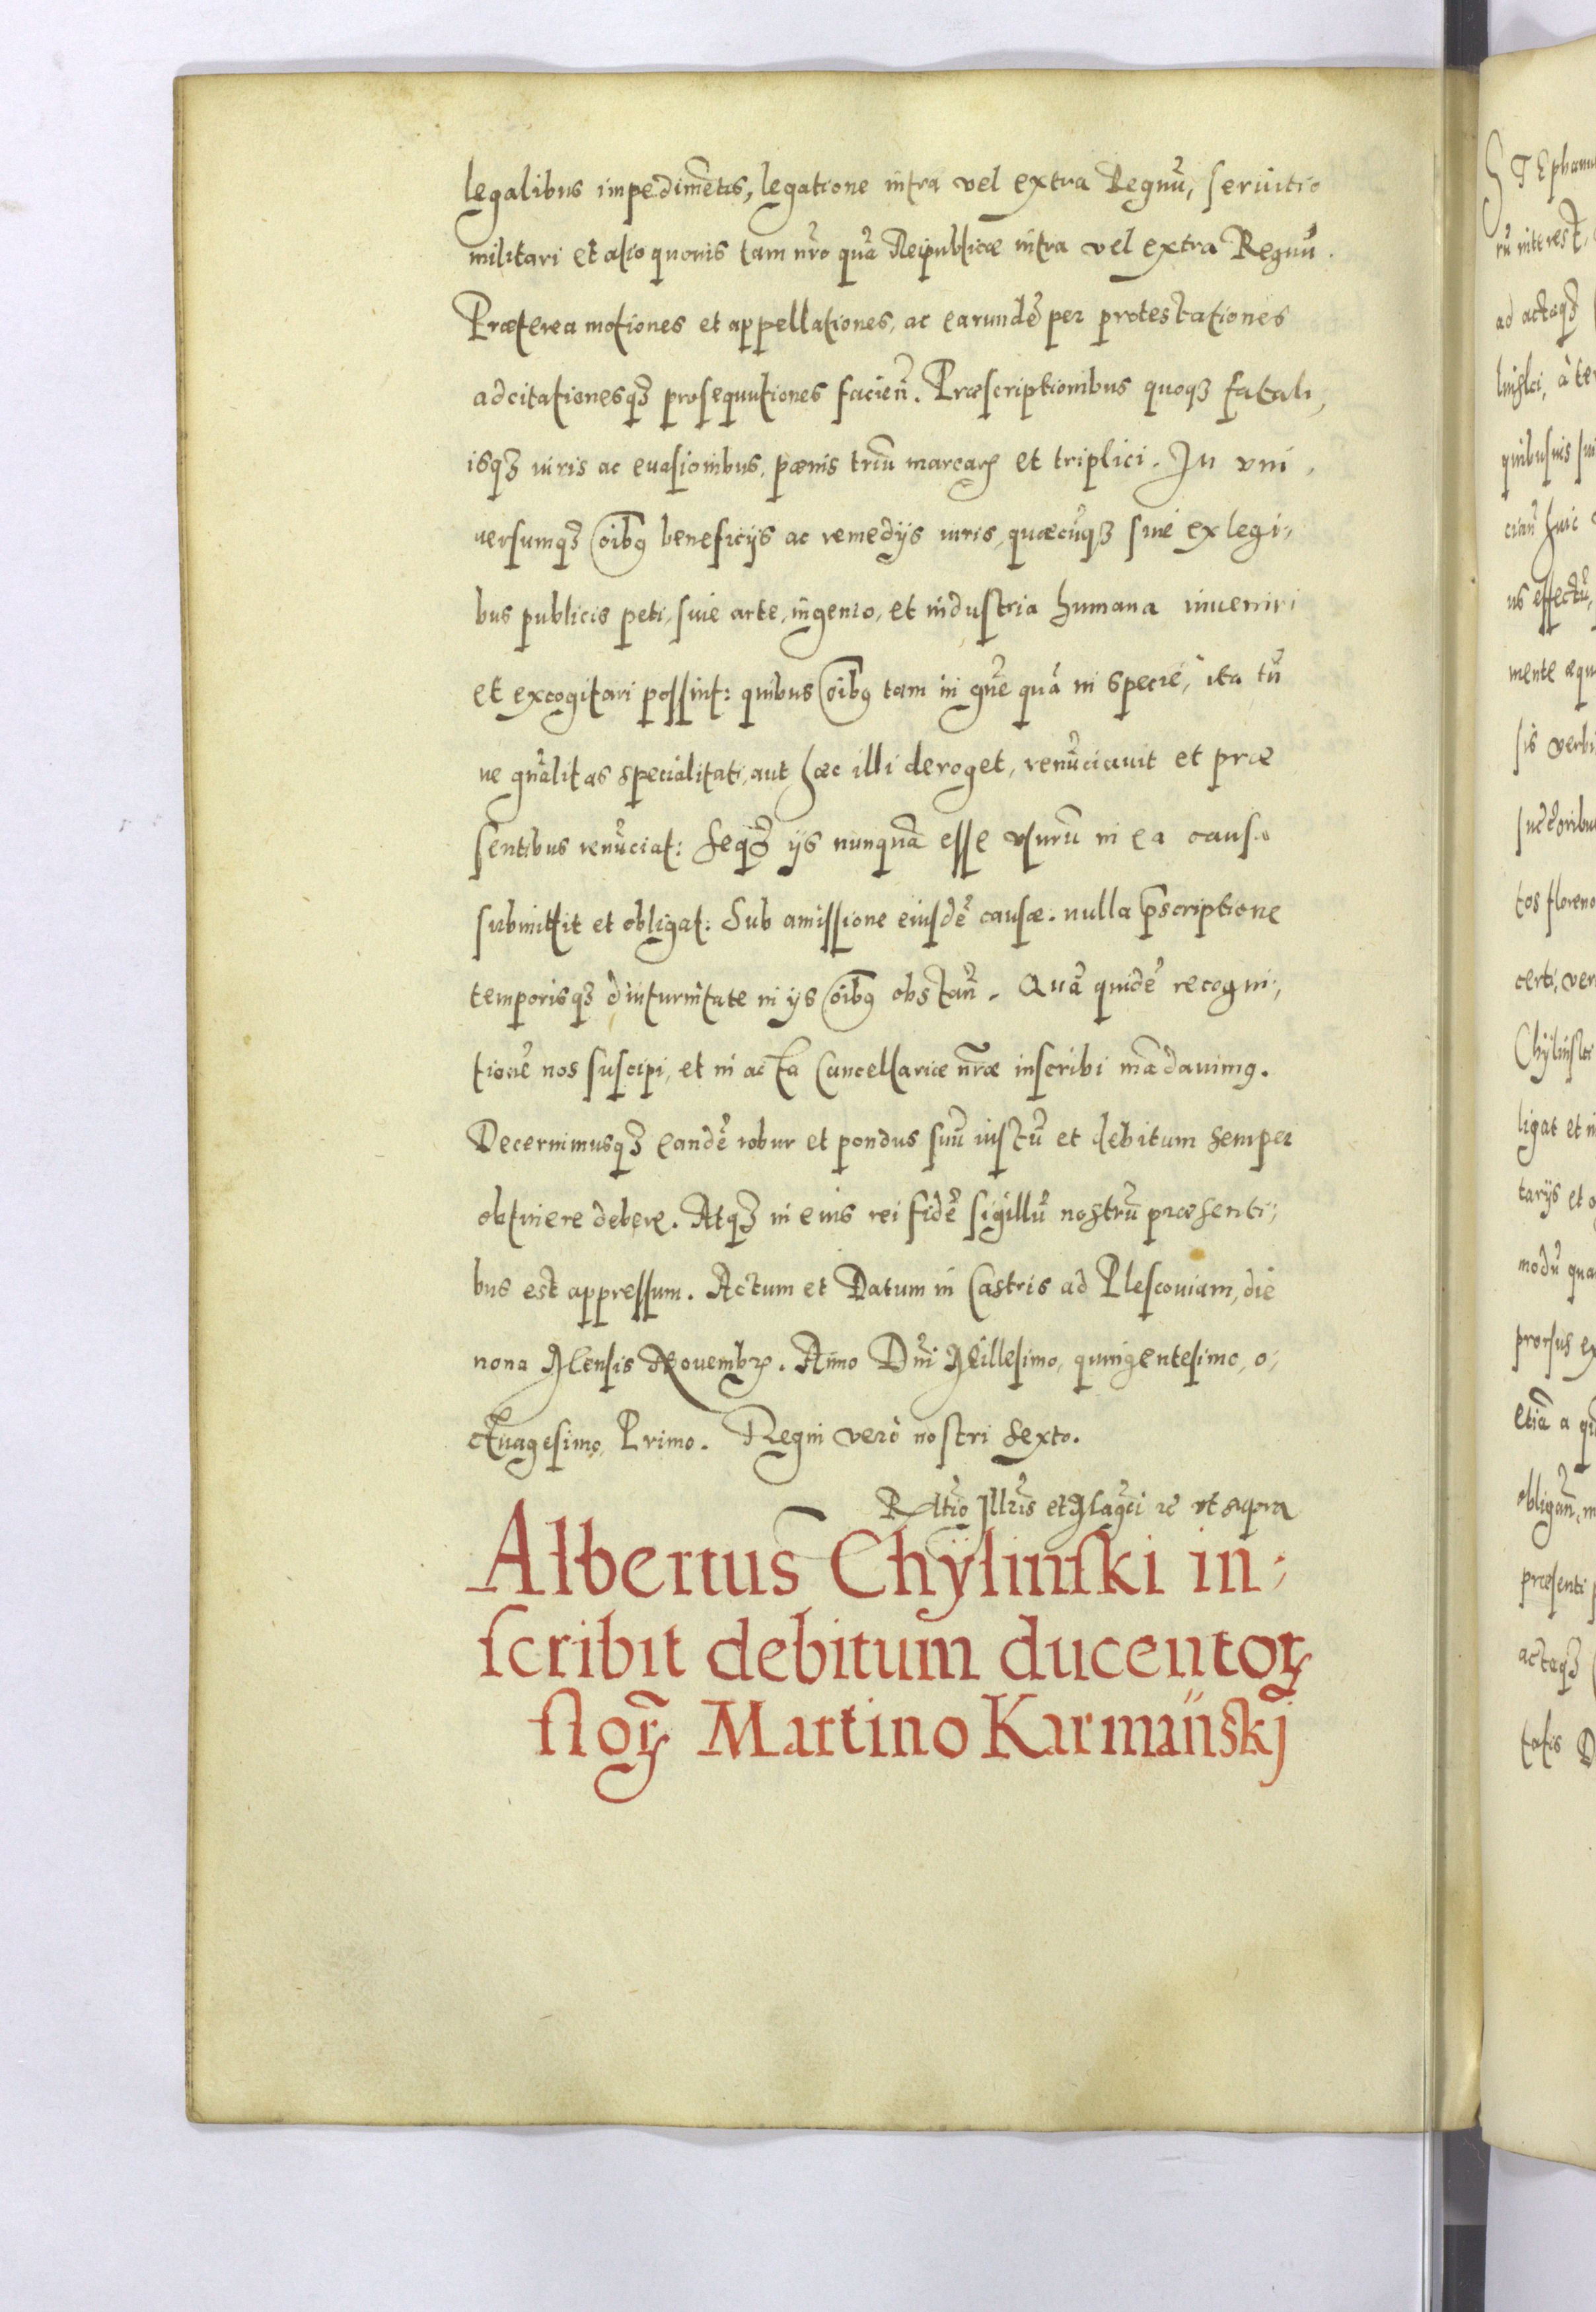 legalibus impedimẽtis, legatione intra vel extra Regnũ, seruitio
militari et alio quouis tam nr̃o quã Reipublicæ intra vel extra Regnũ.
Præterea motiones et appellationes, ac earundẽ per protestationes
adcitationesqꝫ prosequutiones facieñ. Præscriptionibus quoqꝫ fatali,
isqꝫ iuris ac euasionibus, pœnis triũ marcaꝝ et triplici. In vni,
uersumqꝫ oĩbꝰ beneficijs ac remedijs iuris, quæcũqꝫ siue ex legi,
bus publicis peti, siue arte, ingenio, et industria humana inueniri
et excogitari possint: quibus oĩbꝰ tam in gñe quã in specie, ita tñ
ne gñalitas specialitati, aut hæc illi deroget, renũciauit et præ
sentibus renũciat: Seqꝫ ijs nunquã esse vsurũ in ea causa
submittit et obligat: Sub amissione eiusdẽ causæ. nulla p̃scriptione
temporisqꝫ diuturnitate in ijs oĩbꝰ obstañ. Quã quidẽ recogni,
tionẽ nos suscipi, et in acta Cancellariæ nr̃æ inscribi mãdauimꝰ.
Decernimusqꝫ eandẽ robur et pondus suũ iustũ et debitum semper
obtinere debere. Atqꝫ in eius rei fidẽ sigillũ nostrũ præsenti,
bus est appressum. Actum et Datum in Castris ad Plescouiam, die
nona Mensis Nouembꝝ. Anno Dñi Millesimo, quingentesimo, o,
ctuagesimo, Primo. Regni verò nostri sexto.
Rltĩo Illr̃is et Magci ꝛc vt supra
Albertus Chylinski in,
scribit debitum ducentoꝝ
floꝝ Martino Karmański
STEphanu
rũ interest,
ad actaqꝫ
linski, à te
quibusuis
ciañ huic
us effectũ,
mente æqu
sis verbi
succ̃oribu
tos floreno
certi, ver
Chylinski
ligat et i
tarijs et o
modũ qua
prorsus ex
etiã a qu
obligañ, m
præsenti p
actaqꝫ
talis D